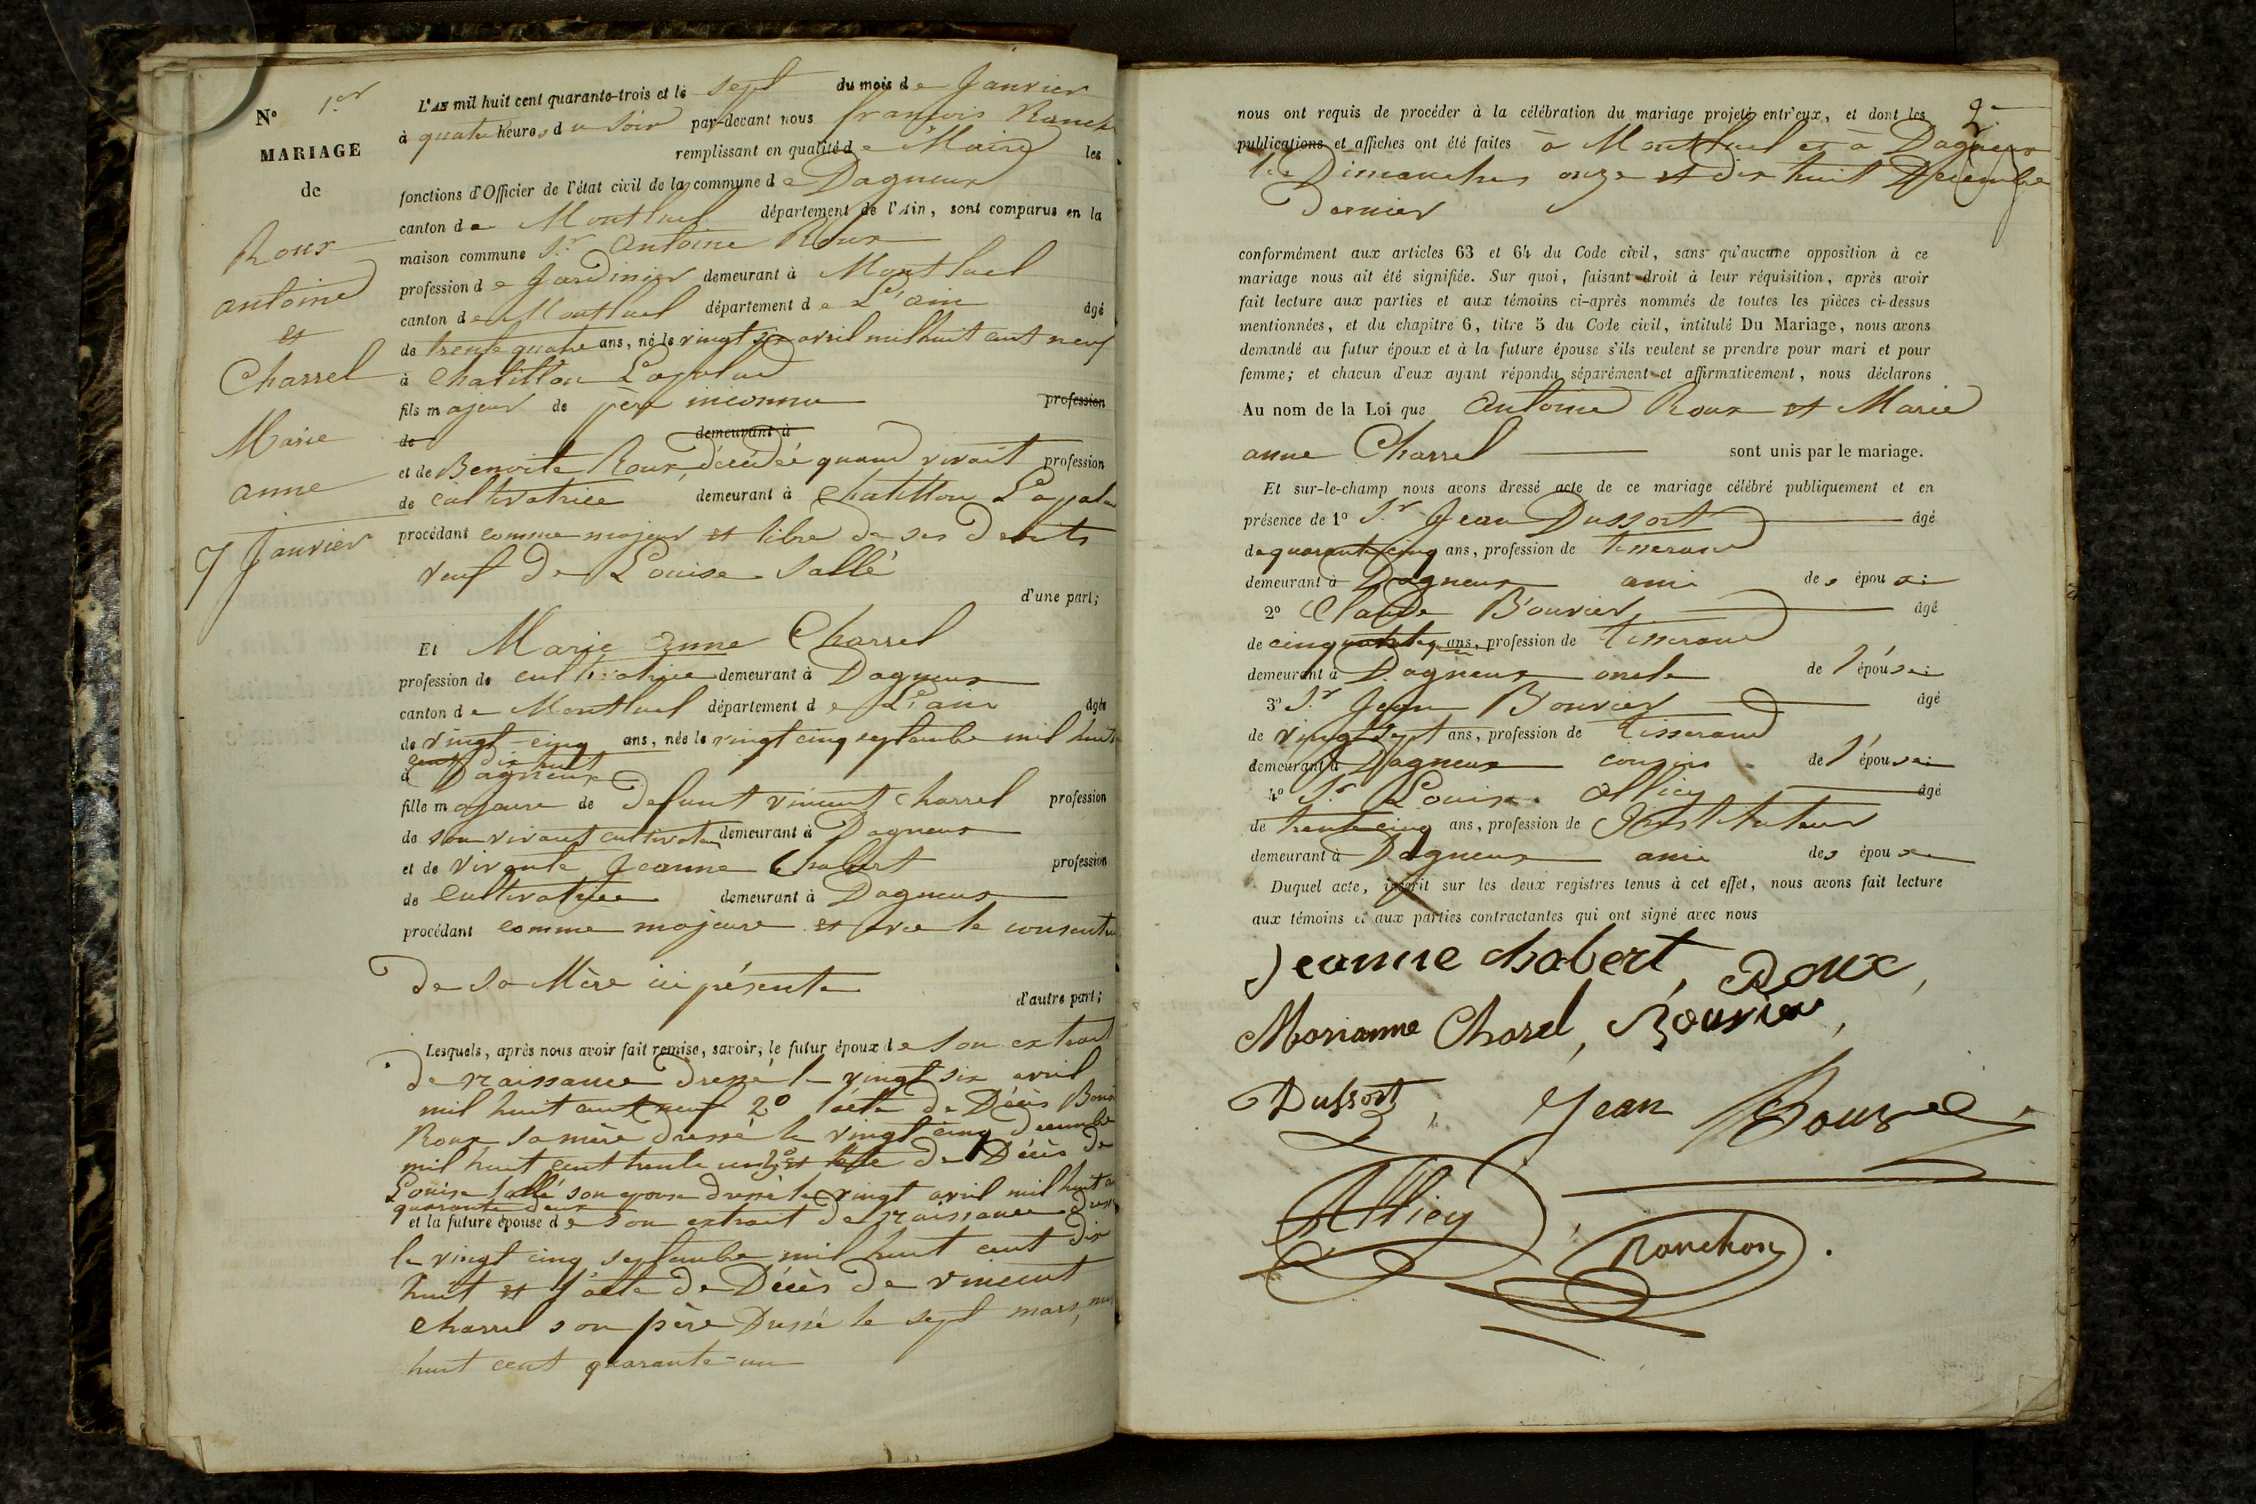 N° 1er
MARIAGE
de
Roux
antoine
et
Charrel
Marie
anne
7 Janvier
L'AN mil huit cent quarante-trois et le sept du mois de Janvier
à quatre heures du soir par-devant nous françois Ranch
remplissant en qualité de Maire les
fonctions d'Officier de l'état civil de la commune de Dagneux
canton de Montluel département de l'Ain, sont comparus en la
maison commune Sr. antoine Roux
profession de Jardinier demeurant à Montluel
canton de Montluel département de L'ain âgé
de trente quatre ans, né le vingt six avril mil huit cent neuf
à Chatillon Lapalud
fils majeur de père inconnu profession
de demeurant à
et de Benoite Roux, décédée quand vivait profession
de cultivatrice demeurant à Chatillon Lapalu
procédant comme majeur et libre de ses Droits
veuf De Louise Sallé
d'une part;
Et Marie anne Charrel
profession de cultivatrice demeurant à Dagneux
canton de Montluel département de L'ain âgée
de vingt-cinq ans, née le vingt cinq septembre mil huit
cent dix huit
à Dagneux
fille majeure de Defunt vincent Charrel profession
de son vivant cultivateur demeurant à Dagneux
et de vivante Jeanne Chabert profession
de Cultivatrice demeurant à Dagneux
procédant comme majeure et avec le consente
De sa Mère ici présente
d'autre part;
Lesquels, après nous avoir fait remise, savoir, le futur époux de son extrait
De naissance Dressé le vingt six avril
mil huit cent neuf 2° l'acte de Décès Benoi
Roux sa mère dressé le vingt cinq Decembre
mil huit cent trente un 3° et l'acte De Décès De
Louise Sallé son epouse dressé le vingt avril mil huit
quarante deux
et la future épouse de son extrait De naissance dres
le vingt cinq septembre mil huit cent dix
huit et l'acte De Décès De vincent
Charrel son père Dressé le sept mars, mi
huit cent quarante-un
2
nous ont requis de procéder à la célébration du mariage projeté entr'eux, et dont les
publications et affiches ont été faites à Montluel et à Dagneux
les Dimanches onze et dix huit Décembre
Dernier
conformément aux articles 63 et 64 du Code civil, sans qu'aucune opposition à ce
mariage nous ait été signifiée. Sur quoi, faisant droit à leur réquisition, après avoir
fait lecture aux parties et aux témoins ci-après nommés de toutes les pièces ci-dessus
mentionnées, et du chapitre 6, titre 5 du Code civil, intitulé Du Mariage, nous avons
demandé au futur époux et à la future épouse s'ils veulent se prendre pour mari et pour
femme; et chacun d'eux ayant répondu séparément et affirmativement, nous déclarons
Au nom de la Loi que Antoine Roux et Marie
anne Charrel sont unis par le mariage.
Et sur-le-champ nous avons dressé acte de ce mariage célébré publiquement et en
présence de 1° Sr Jean Dussort âgé
de quarante cinq ans, profession de tisserand
demeurant à Dagneux ami des époux
2° Claude Bouvier, âgé
de cinquante ans, profession de tisserand
demeurant à Dagneux oncle de l'épouse
3° Sr Jean Bouvier âgé
de vingt sept ans, profession de tisserand
demeurant à Dagneux cousin de l'épouse
4° Sr Louis Allicy âgé
de trente cinq ans, profession de Instituteur
demeurant à Dagneux ami des époux
Duquel acte, inscrit sur les deux registres tenus à cet effet, nous avons fait lecture
aux témoins et aux parties contractantes qui ont signé avec nous
Jeanne chabert, Roux,
Marianne Charel, Bouvier,
Dussort, Jean Bouvie
Allicy, Ranchon.